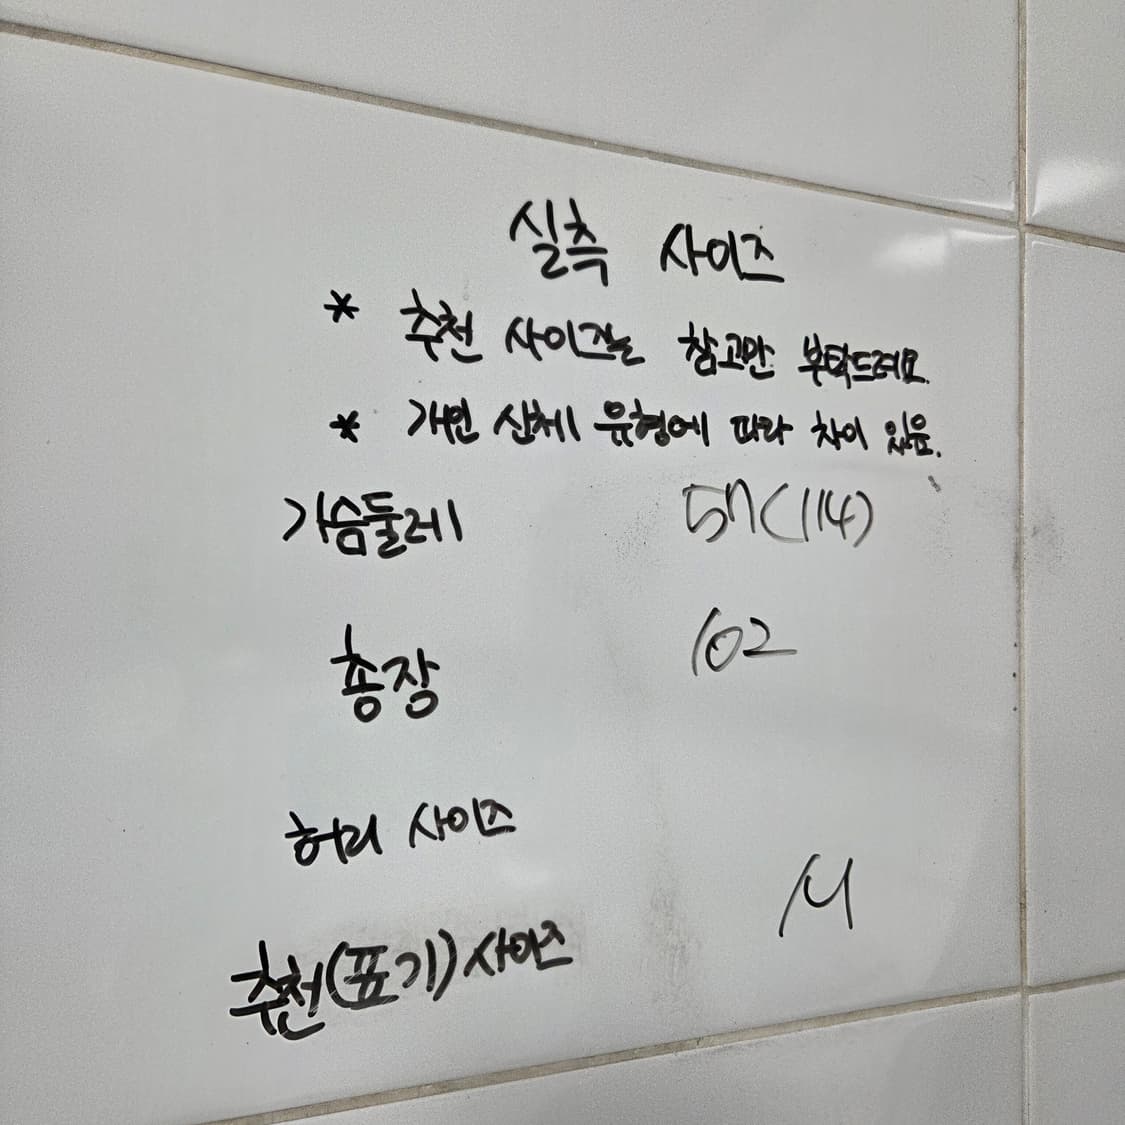 실측 사이즈
* 추천 사이즈는 참고만 부탁드려요.
* 개인 신체 유형에 따라 차이 있음.
가슴둘레 57(114)
총장 102
허리 사이즈
추천(표기)사이즈 M